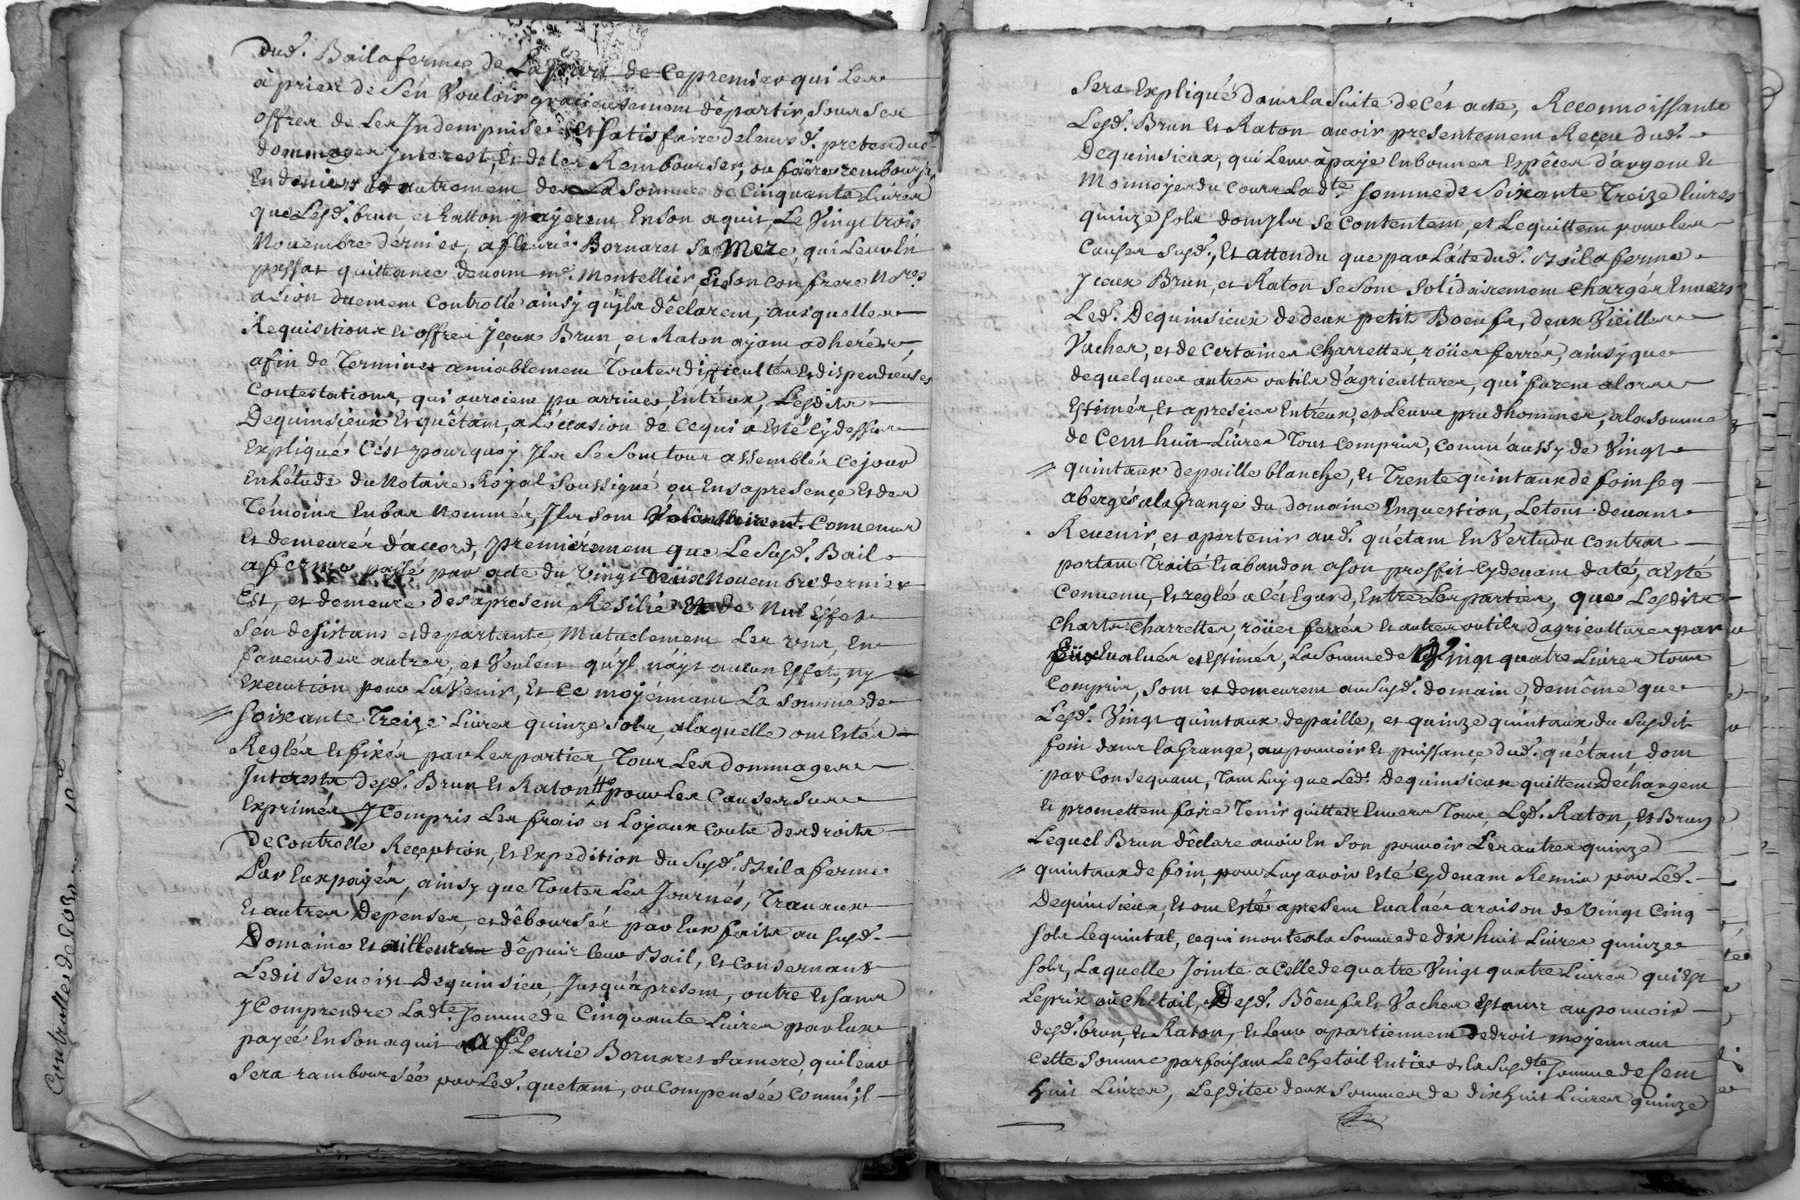 dud. Bail a ferme de la part de ce premier qui les
a prier de s'én Vouloir gracieusement départir, sous ses
offres de Les Indempniser et satisfaire de leursd. pretendus
dommages Interest, Et de les Rembourser, ou faire rembourser
En deniers ou autrement de La Somme de Cinquante Livres
que Lesd. brun et Ratton payerent En son aquit, Le Vingt trois
Novembre dérnier, a fleurie Bornaret sa Mere, qui Leur En
passat quittance devant me. Montellier Et son confrere Nores
a Lion duement Controllé ainsy qu'jls déclarent, ausquelles
Requisitions et offres jceux Brun, et Raton ayant adherés
afin de Terminer amiablement Toutes difficultés Et dispendieuses
Contestations, qui auroient pu arriver, Entréux, Lesdits
Dequinsieux Et quêtant, a L'occasion de ce qui a Esté cy dessus
Expliqué C'ést pourquoy Jls se sont tous assemblés ce jour
En L'étude du Notaire Royal soussigné ou En sa presence Et des
Témoins En bas Nommés, Jls sont Volontairemt. Convenus
Et demeurés d'accord, premiérement que Le susd. Bail
a ferme passé par acte du Vingt Deux Novembre dernier
Est, et demeure des apresent Resilié Et de Nul Effet
S'én desistans et departants, Mutuelement Les uns, En
faveur des autres, et Veulent qu'jl n'ayt aucun Effet, ny
Execution pour L'avenir, Et ce moyénnant La somme de
Soixante Treize Livres quinze Sols, a laquelle ont Estés
Reglés et fixés par Les parties Tous Les dommages
Interests desd. Brun Et Raton pour Les Causes sus
Exprimés, y compris Les frais et Loyaux couts des droits
De Controlle Reception, Et Expedition du susd. Bail a ferme
Par Eux payés, ainsy que Toutes Les Journés, Travaux
Et autres Dépenses, et débourcés par Eux faits au susd.
Domaine Et ailleurs dépuis leur Bail, Et consernant
Ledit Benoist Dequinsieu, Jusqu'a present, outre Et sans
y Comprendre Ladte. somme de Cinquante Livres par Eux
payée En son aquit a fleurie Bornaret sa mere, qui leur
sera rambourséé par Led. quetant, ou compenséé comm'jl
Controlle de
Sera Expliqué dans la suite de Cés acte, Reconnoissants
Lesd. Brun Et Raton avoir presentement Reçeu dud.
Dequinsieux, qui Leur a payé En bonnes Espéces d'argent Et
Monnoyes du cours Ladte. somme de Soixante Treize livres
quinze sols dont jls se contentent, et Le quittent pour les
Causes susd., Et attendu que par L'acte dud. Bail a ferme
Jceux Brun, et Raton se sont solidairement Chargés Envers
Led. Dequinsieux de deux petits Boeufs, deux Vieilles
Vaches, et de certaines Charrettes, roües ferrés, ainsy que
de quelques autres outils d'agricultures, qui furent alors
Estimés, Et apreciés Entréux, et Leurs prudhommes, a la somme
de Cent huit Livres Tout compris, comm'aussy de Vingt
quintaux de paille blanche, et Trente quintaux de foin seq
abergés a la grange du domaine En question, Le tout devant
Revenir et apartenir aud. quétant En Vertu du contrat
portant Traité Et abandon a son proffit cy devant daté, a Esté
Convenu, Et reglé a cét Egard, Entre Les parties, que Lesdits
Chars Charrettes, roües ferrés Et autres outils d'agricultures par
Eux Evalués et Estimés, La somme de Vingt quatre Livres tout
compris, sont et demeurent au susd. domaine, de même que
Lesd. Vingt quintaux de paille, et quinze quintaux du susdit
foin dans la Grange, au pouvoir Et puissance dud. quétant, dont
par Consequant, Tant Luy que Led. Dequinsieux quittent Dechargent
Et promettent faire Tenir quittes Envers Tous, Lesd. Raton, Et Brun
Lequel Brun déclare avoir En son pouvoir Les autres quinze
quintaux de foin, pour Luy avoir Esté Cydevant Remis par Led.
Dequinsieux, Et ont Esté apresent Evalués a raison de Vingt Cinq
sols Le quintal, ce qui monte a la somme de dix huit Livres quinze
sols, Laquelle Jointe a Celle de quatre Vingt quatre Livres qui est
Le prix ou Chetail, Desd. Bôeufs Et Vaches Estans au pouvoir
desd. brun, Et Raton, Et Leur apartiennent De droit moyennant
Cette somme parfaisant Le Chetail Entier de la susdte. somme de Cent
huit Livres, Lesdites deux sommes de dix huit Livres quinze